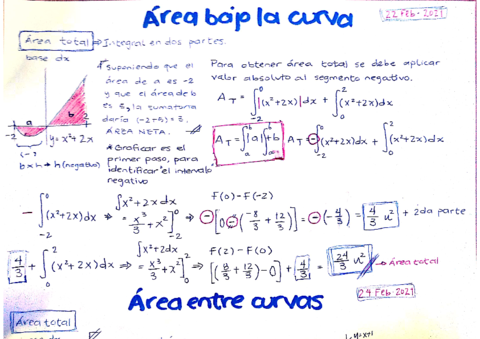 Área bajo la curva
22 Feb - 2021
Área total ⇒ Integral en dos partes.
base dx
* Suponiendo que el
área de a es -2
y que el área de b
es 5, la sumatoria
daría (-2+5) = 3.
ÁREA NETA.
* Graficar es el
primer paso, para
identificar el intervalo
negativo
a
b
-2
2
y = x²+2x
(-)
b x h → h (negativo)
Para obtener área total se debe aplicar
valor absoluto al segmento negativo.
A_T = ∫_{-2}^{0} |(x²+2x)| dx + ∫_{0}^{2} (x²+2x) dx
A_T = ∫|a| + ∫b
A_T = -∫_{-2}^{0} (x²+2x) dx + ∫_{0}^{2} (x²+2x) dx
- ∫_{-2}^{0} (x²+2x) dx ⇒ ∫x²+2x dx = x³/3 + x² ]_{-2}^{0} ⇒ F(0) - F(-2)
-[0 - (-8/3 + 12/3)] = -(-4/3) = 4/3 u² + 2da parte
4/3 + ∫_{0}^{2} (x²+2x) dx ⇒ ∫x²+2x dx = x³/3 + x² ]_{0}^{2} ⇒ F(2) - F(0)
[(8/3 + 12/3) - 0] + 4/3 = 24/3 u² → Área total
Área entre curvas
24 Feb 2021
Área total